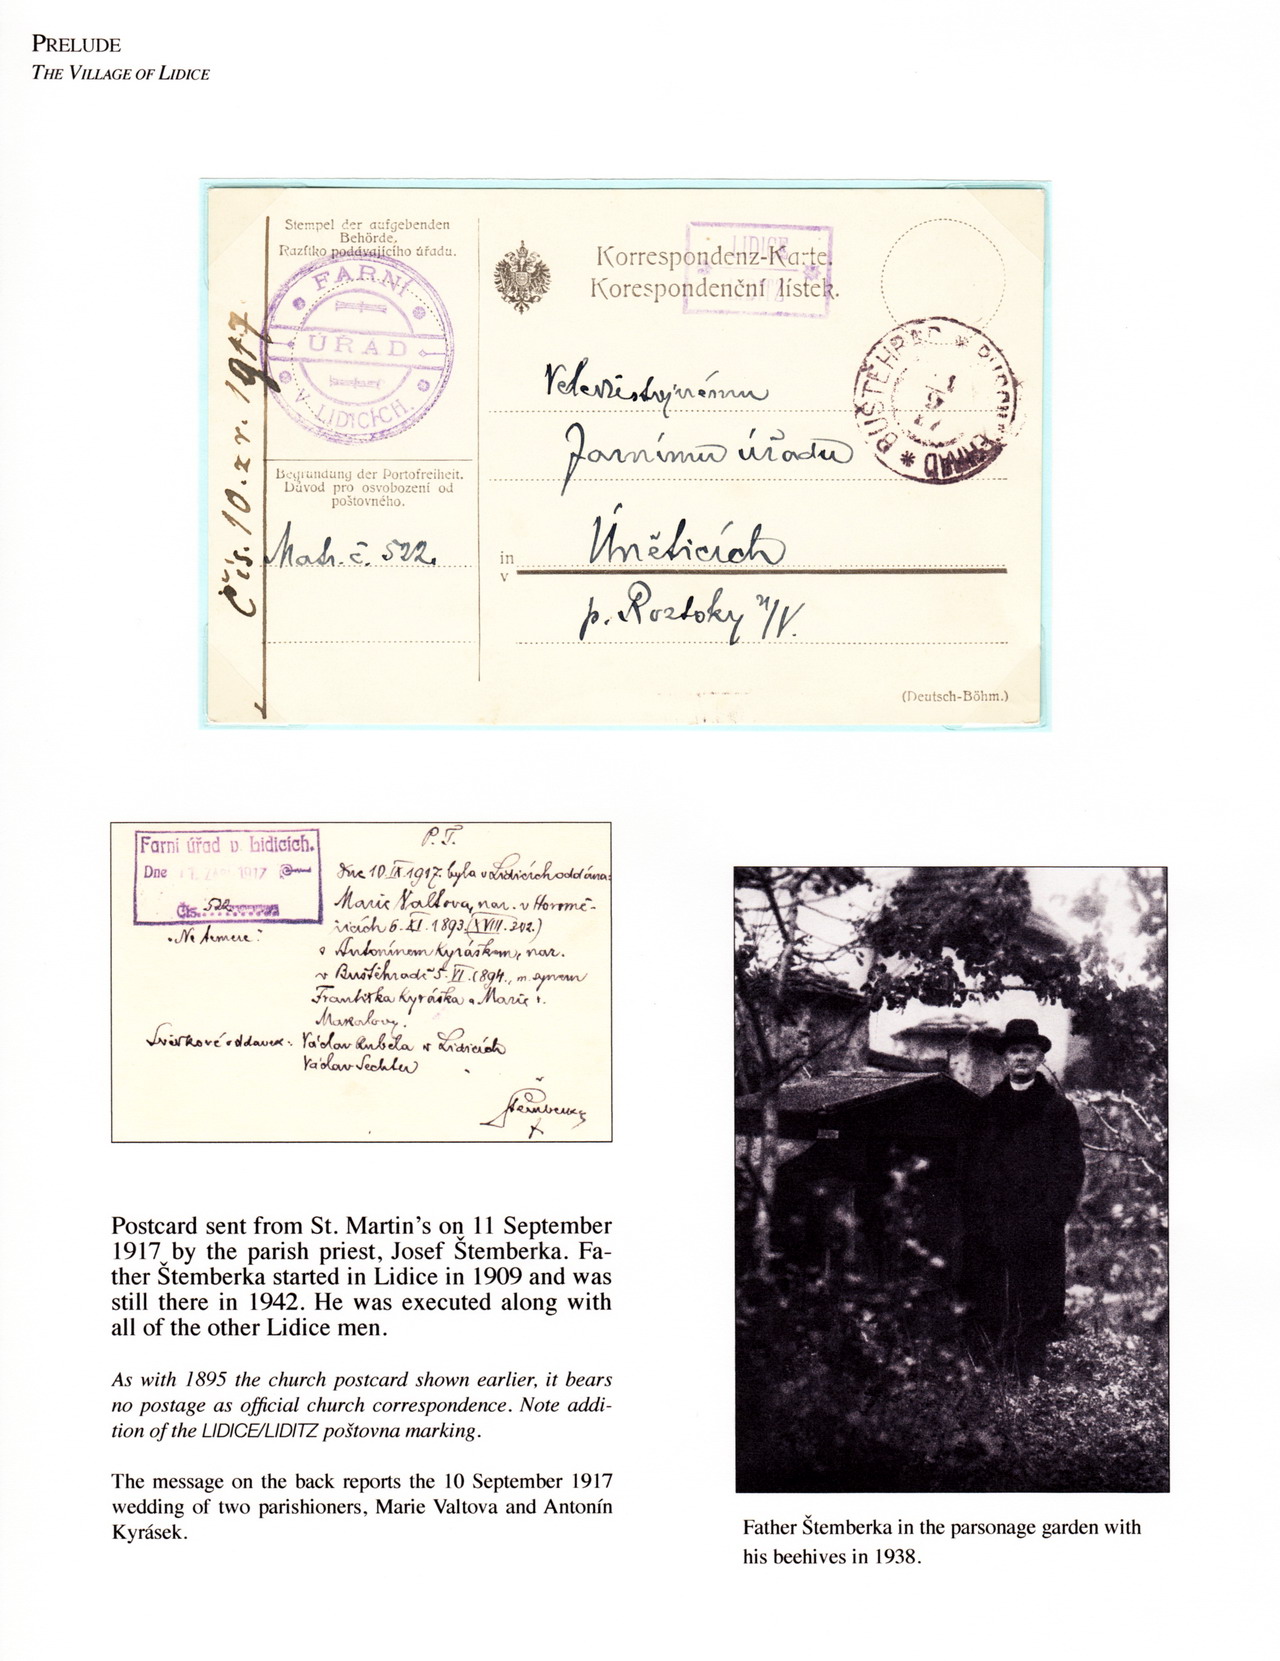 PRELUDE
THE VILLAGE OF LIDICE
Stempel der aufgebenden
Behörde,
Razítko podávajícího úřadu.
FARNÍ
ÚŘAD
V LIDICÍCH.
Čís. 10. z r. 1917
Begründung der Portofreiheit.
Důvod pro osvobození od
poštovného.
Matr. č. 522.
LIDICE
Korrespondenz-Karte.
Korespondenční lístek.
BUŠTĚHRAD
Farnímu úřadu
in
v
Úněticích
p. Roztoky n/V.
(Deutsch-Böhm.)
Farní úřad v Lidicích.
Dne 11. ZÁŘÍ 1917
Čís. 522
"Ne temere."
P. T.
Dne 10. IX 1917. byla v Lidicích oddána:
Marie Valtova, nar. v Horomě-
řicích 6. XI. 1893. (XVIII. 202.)
s Antonínem Kyráskem, nar.
v Buštěhradě 5. VI. 1894., m. synem
Františka Kyráska a Marie r.
Svědkové oddavek: Václav v Lidicích
Václav
Štemberka
Postcard sent from St. Martin's on 11 September
1917 by the parish priest, Josef Štemberka. Fa-
ther Štemberka started in Lidice in 1909 and was
still there in 1942. He was executed along with
all of the other Lidice men.
As with 1895 the church postcard shown earlier, it bears
no postage as official church correspondence. Note addi-
tion of the LIDICE/LIDITZ poštovna marking.
The message on the back reports the 10 September 1917
wedding of two parishioners, Marie Valtova and Antonín
Kyrásek.
Father Štemberka in the parsonage garden with
his beehives in 1938.